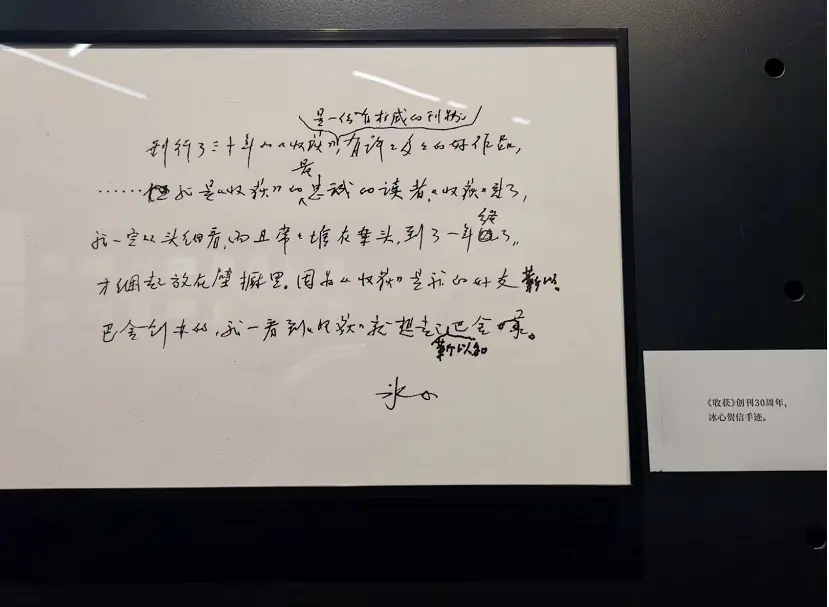 是一份有权威的刊物
刊行了三十年的《收获》,有许许多多的好作品,
最
……我是《收获》的忠诚的读者,《收获》到了,
终
我一定从头细看,而且常常堆在案头,到了一年了,
才捆起放在壁橱里。因为《收获》是我的好友靳以、
巴金创办的,我一看到《收获》就想起巴金来。
靳以和
冰心
《收获》创刊30周年,
冰心贺信手迹。